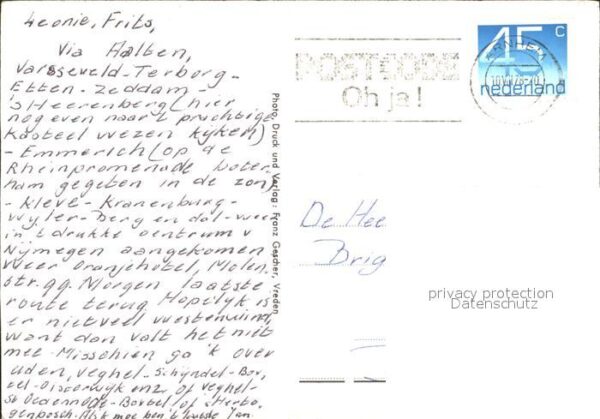 Leonie, Frits,
Via Aalten,
Varsseveld-Terborg-
Etten-Zeddam-
s'Heerenberg (hier
nog even naar 't prachtige
Kasteel wezen kijken)
- Emmerich (op de
Rheinpromenade boter
ham gegeten in de zon)
- Kleve-Kranenburg-
Wyler-Berg en dal-weer
in 't drukke centrum v
Nijmegen aangekomen
Weer Oranjehotel, Molen
str. 99. Morgen laatste
route terug Hopelyk is
er niet veel westenwind,
want dan valt het niet
mee. Misschien ga 'k over
Uden, Veghel-Schijndel-Box,
tel-Oisterwyk enz. of Veghel-
St Oedenrode-Boxtel of s'Herto,
genbosch.
Photo, Druck und Verlag: Franz Gescher, Vreden
POSTCODE
Oh ja!
45 c
nederland
De Hee
Brig
privacy protection
Datenschutz